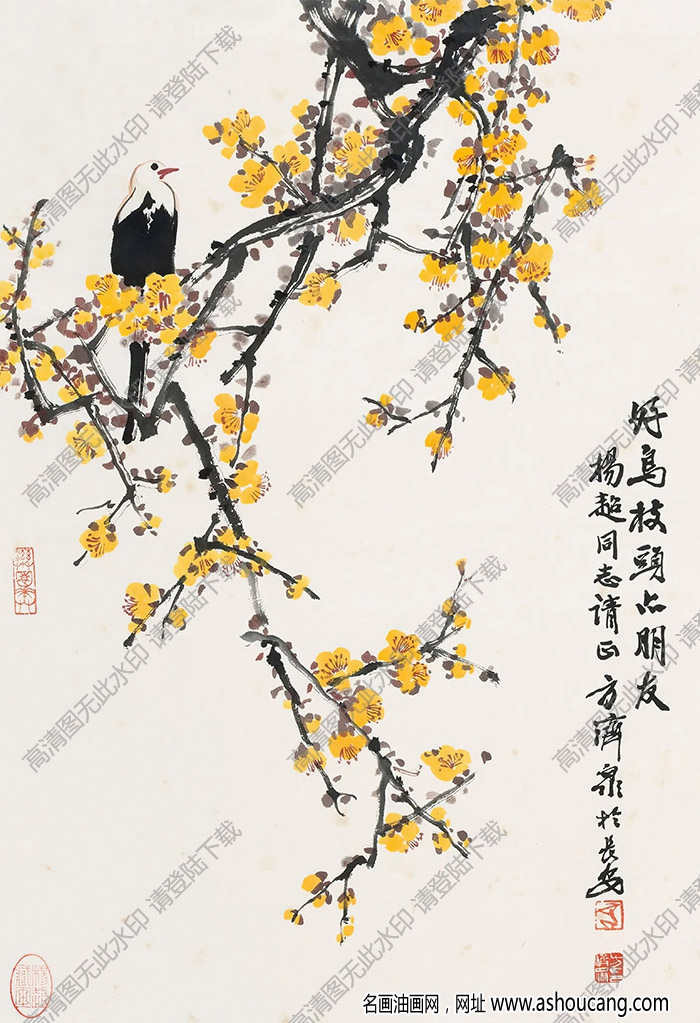 好鳥枝頭亦朋友
楊超同志請正方濟衆於長安
高清图无此水印 请登陆下载
名画油画网，网址 www.ashoucang.com